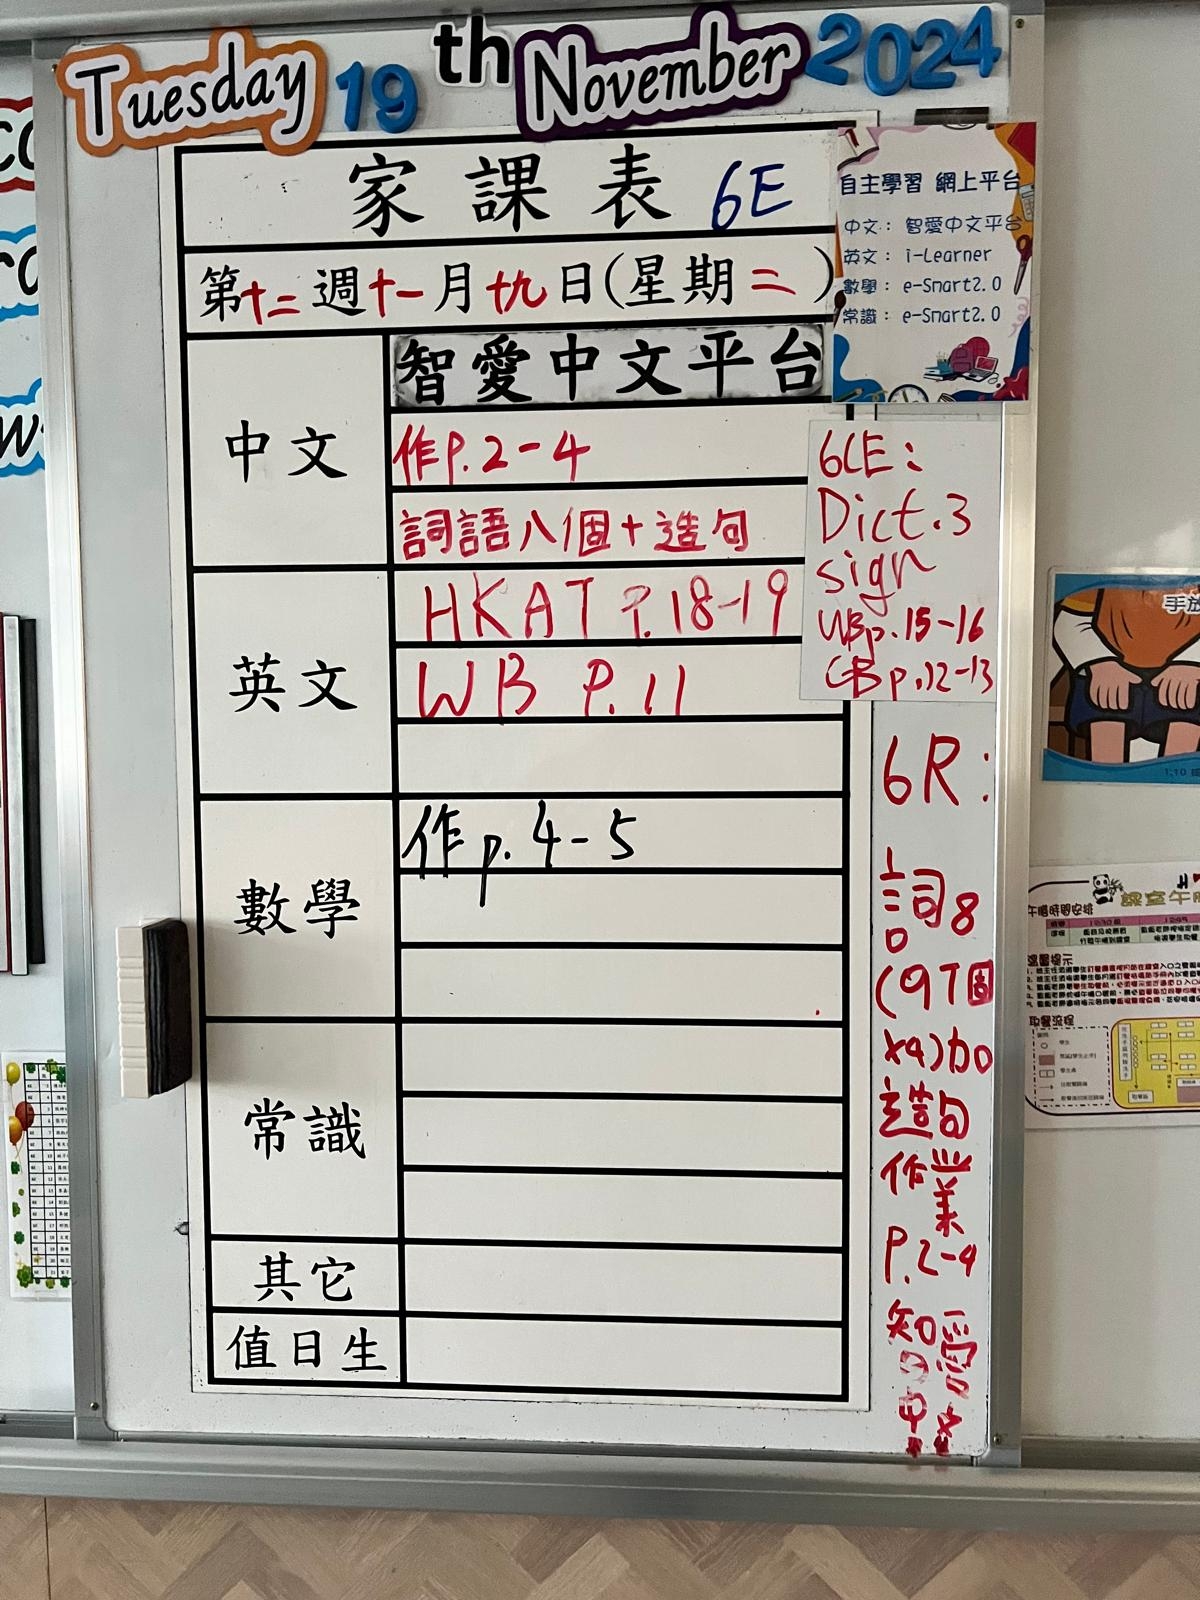 Tuesday 19th November 2024
家課表 6E
第十二週十一月十九日(星期二)
自主學習 網上平台
中文: 智愛中文平台
英文: i-Learner
數學: e-Smart2.0
常識: e-Smart2.0
中文
智愛中文平台
作p.2-4
詞語八個+造句
英文
HKAT P.18-19
WB P.11
數學
作p.4-5
常識
其它
值日生
6CE:
Dict.3
sign
WBp.15-16
GBp.12-13
6R:
詞8
(9T固
x4)加
造句
作業
P.2-4
智愛
中文
手放
1,10